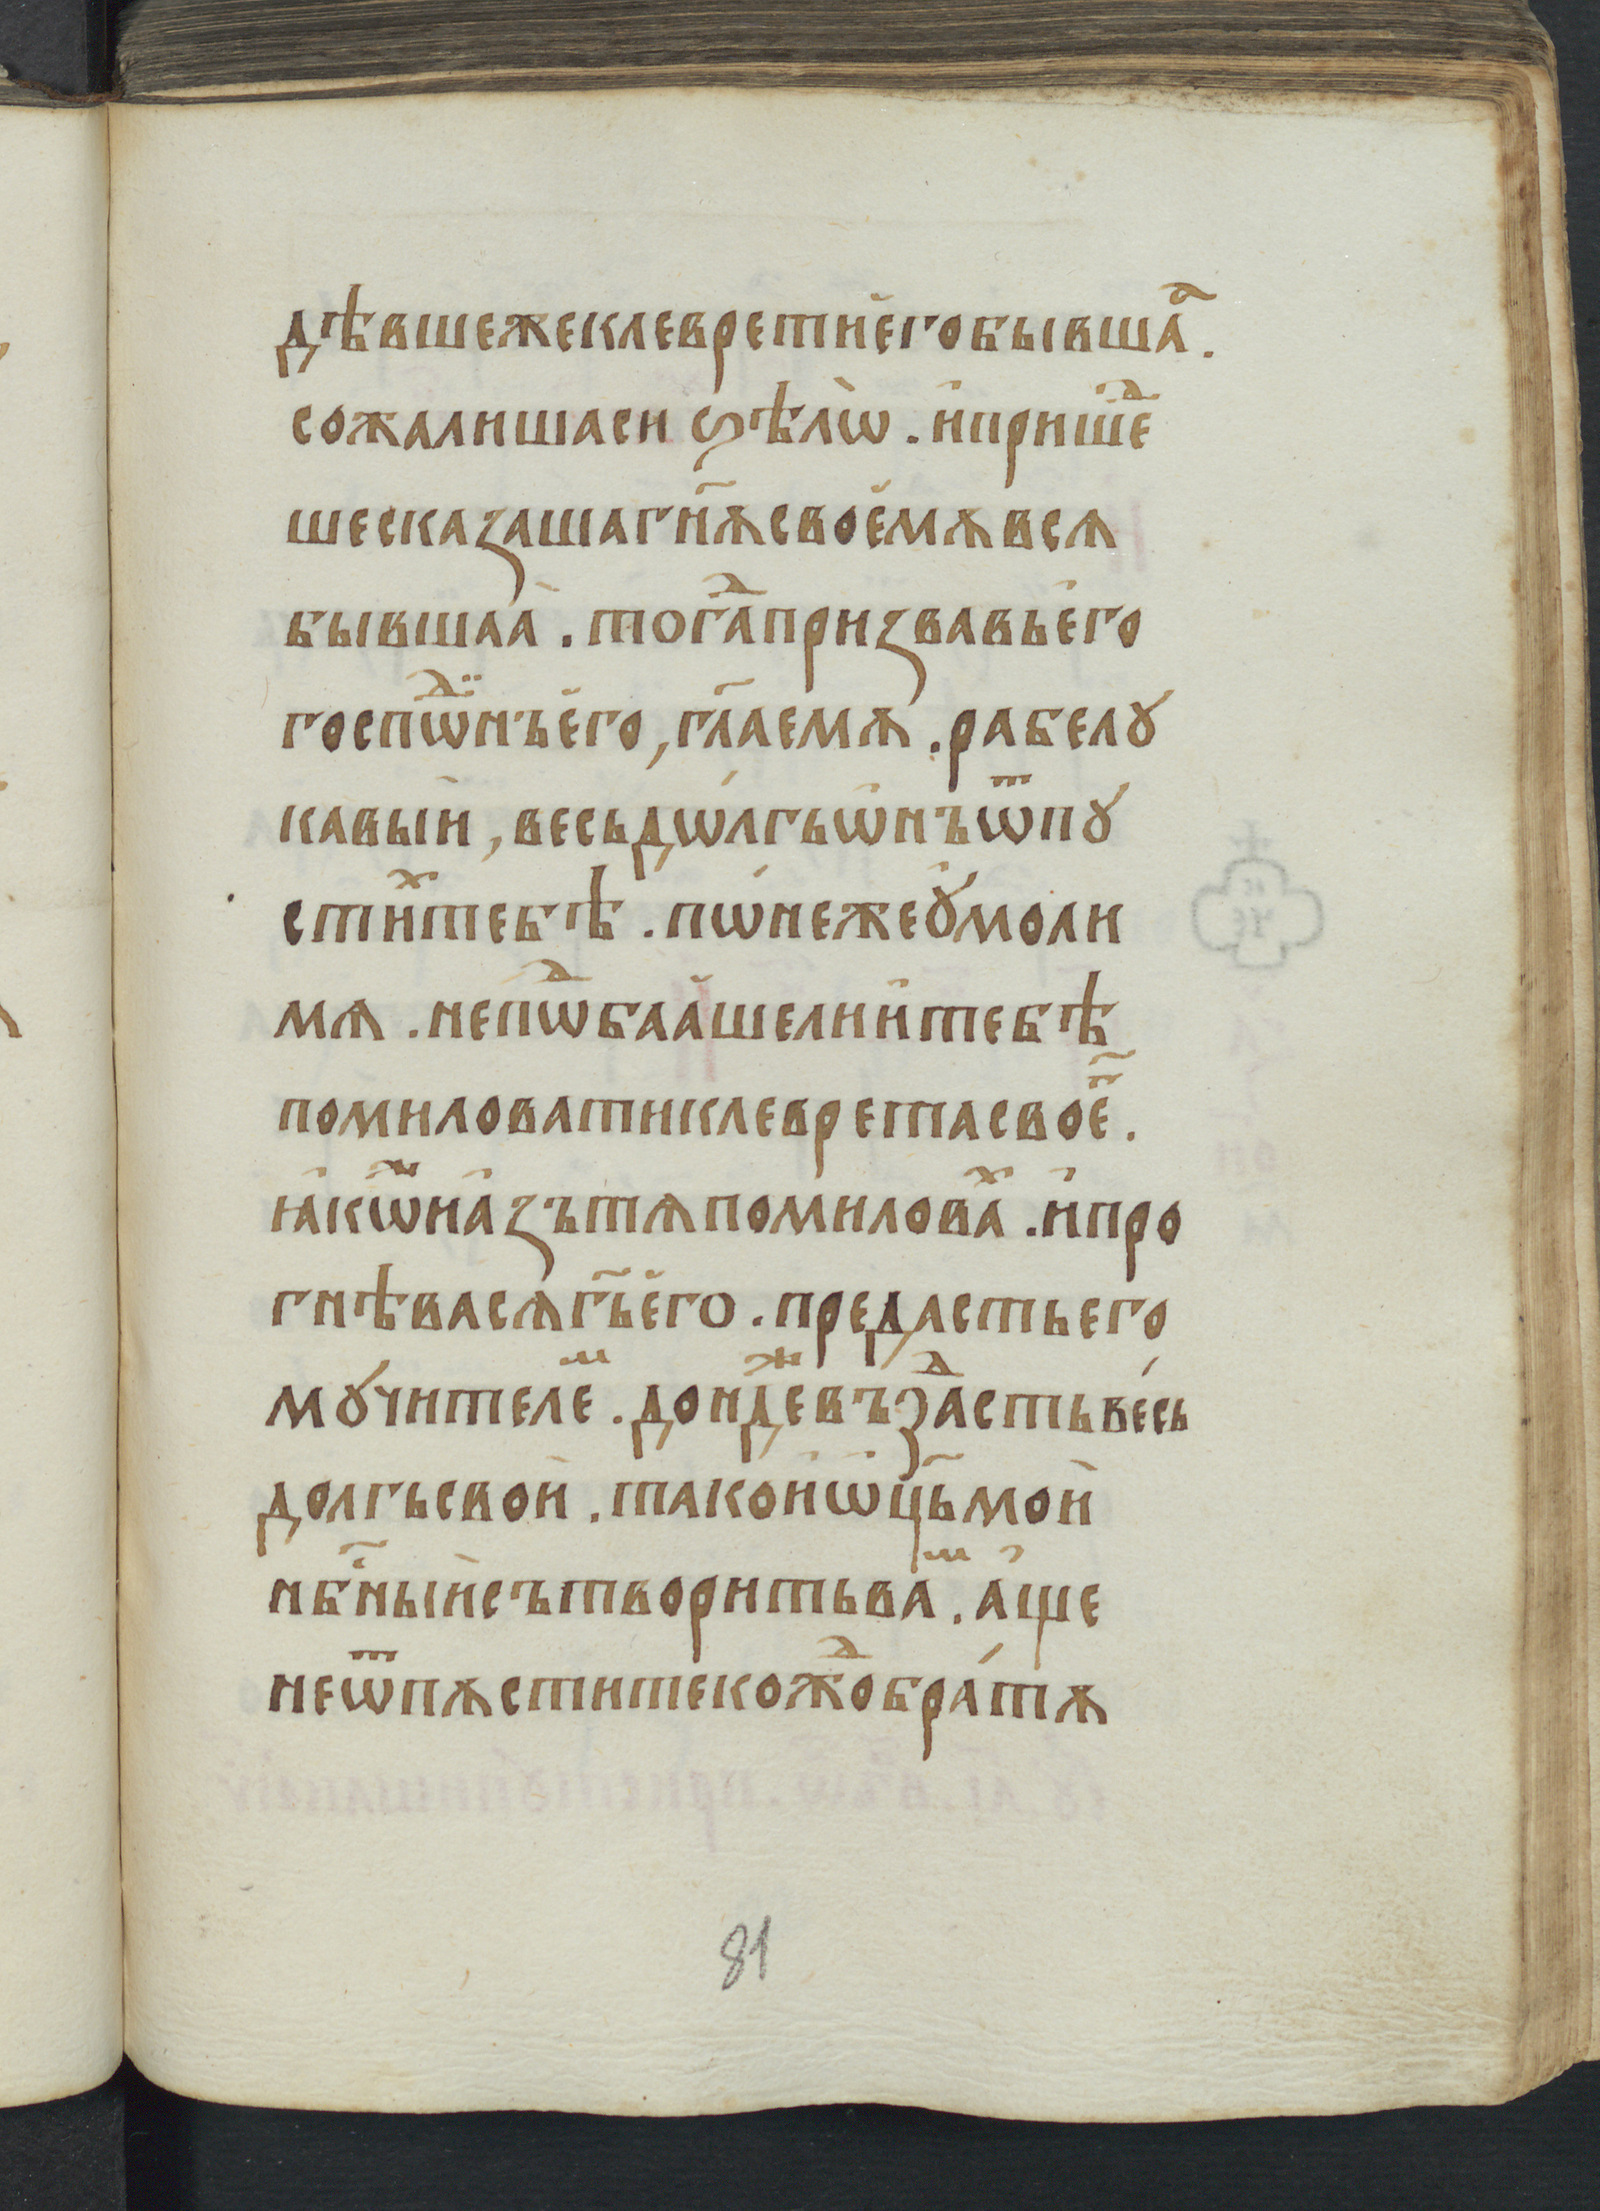 дѣвшежеклевретиего̀бывшаⷶ.
сожалишаси ѕѣлѡ̀. ипришеⷣ
шесказашагн҃ѫсвоемѫвсѧ
бывшаа̀. тогаⷣпризвавьего
госпѡⷣнъего, гл҃аемѫ. рабелꙋ
кавыи, весьдѡ́лгьѡ҆нъѿпꙋ
стиⷯтебѣ. пѡ́нежеꙋмоли
мѧ. непѡⷣбаашелиитебѣ
помиловатиклевретасвоеⷢ҇.
ꙗкѡⷤиазътѧпомиловаⷯ. ипро
гнѣвасѧгь҃его. предастьего
мꙋчителеⷨ. донⷤдевъзⷣастьве́сь
долгьсвои. такоиѡц҃ьмои
нбⷭ҇ныисътворитьваⷨ. а҆ще
неѿпѫститекожⷣобра́тѫ
81